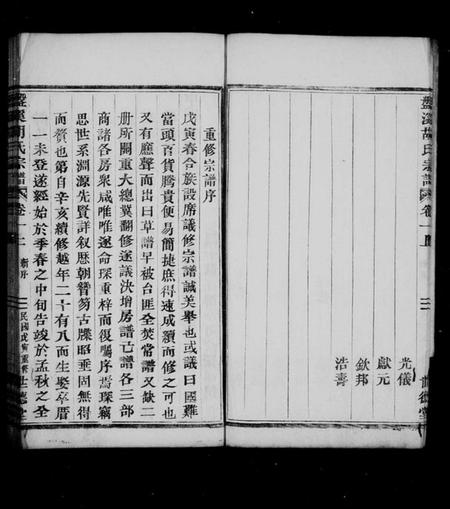 世德堂
盤溪胡氏宗譜
卷一上
光儀
獻元
欽邦
浩壽
重修宗譜序
戊寅春合族設席議修宗譜誠美舉也或議曰國難
當頭百貨騰貴便易簡捷庶得速成續而修之可也
又有應聲而出曰草譜早被台匪全焚常譜又缺二
册所關重大總冀翻修遂議決增房譜亡譜各三部
商諸各房衆咸唯唯遂命琛重梓而復囑序焉琛竊
思世系淵源先賢詳叙歷朝簪笏古牒昭垂固無得
而贅也第自辛亥續修越年二十有八而生娶卒厝
一一未登遂經始於季春之中旬告竣於孟秋之全
盤溪胡氏宗譜
卷一上
新序
民國戊寅重修
世德堂